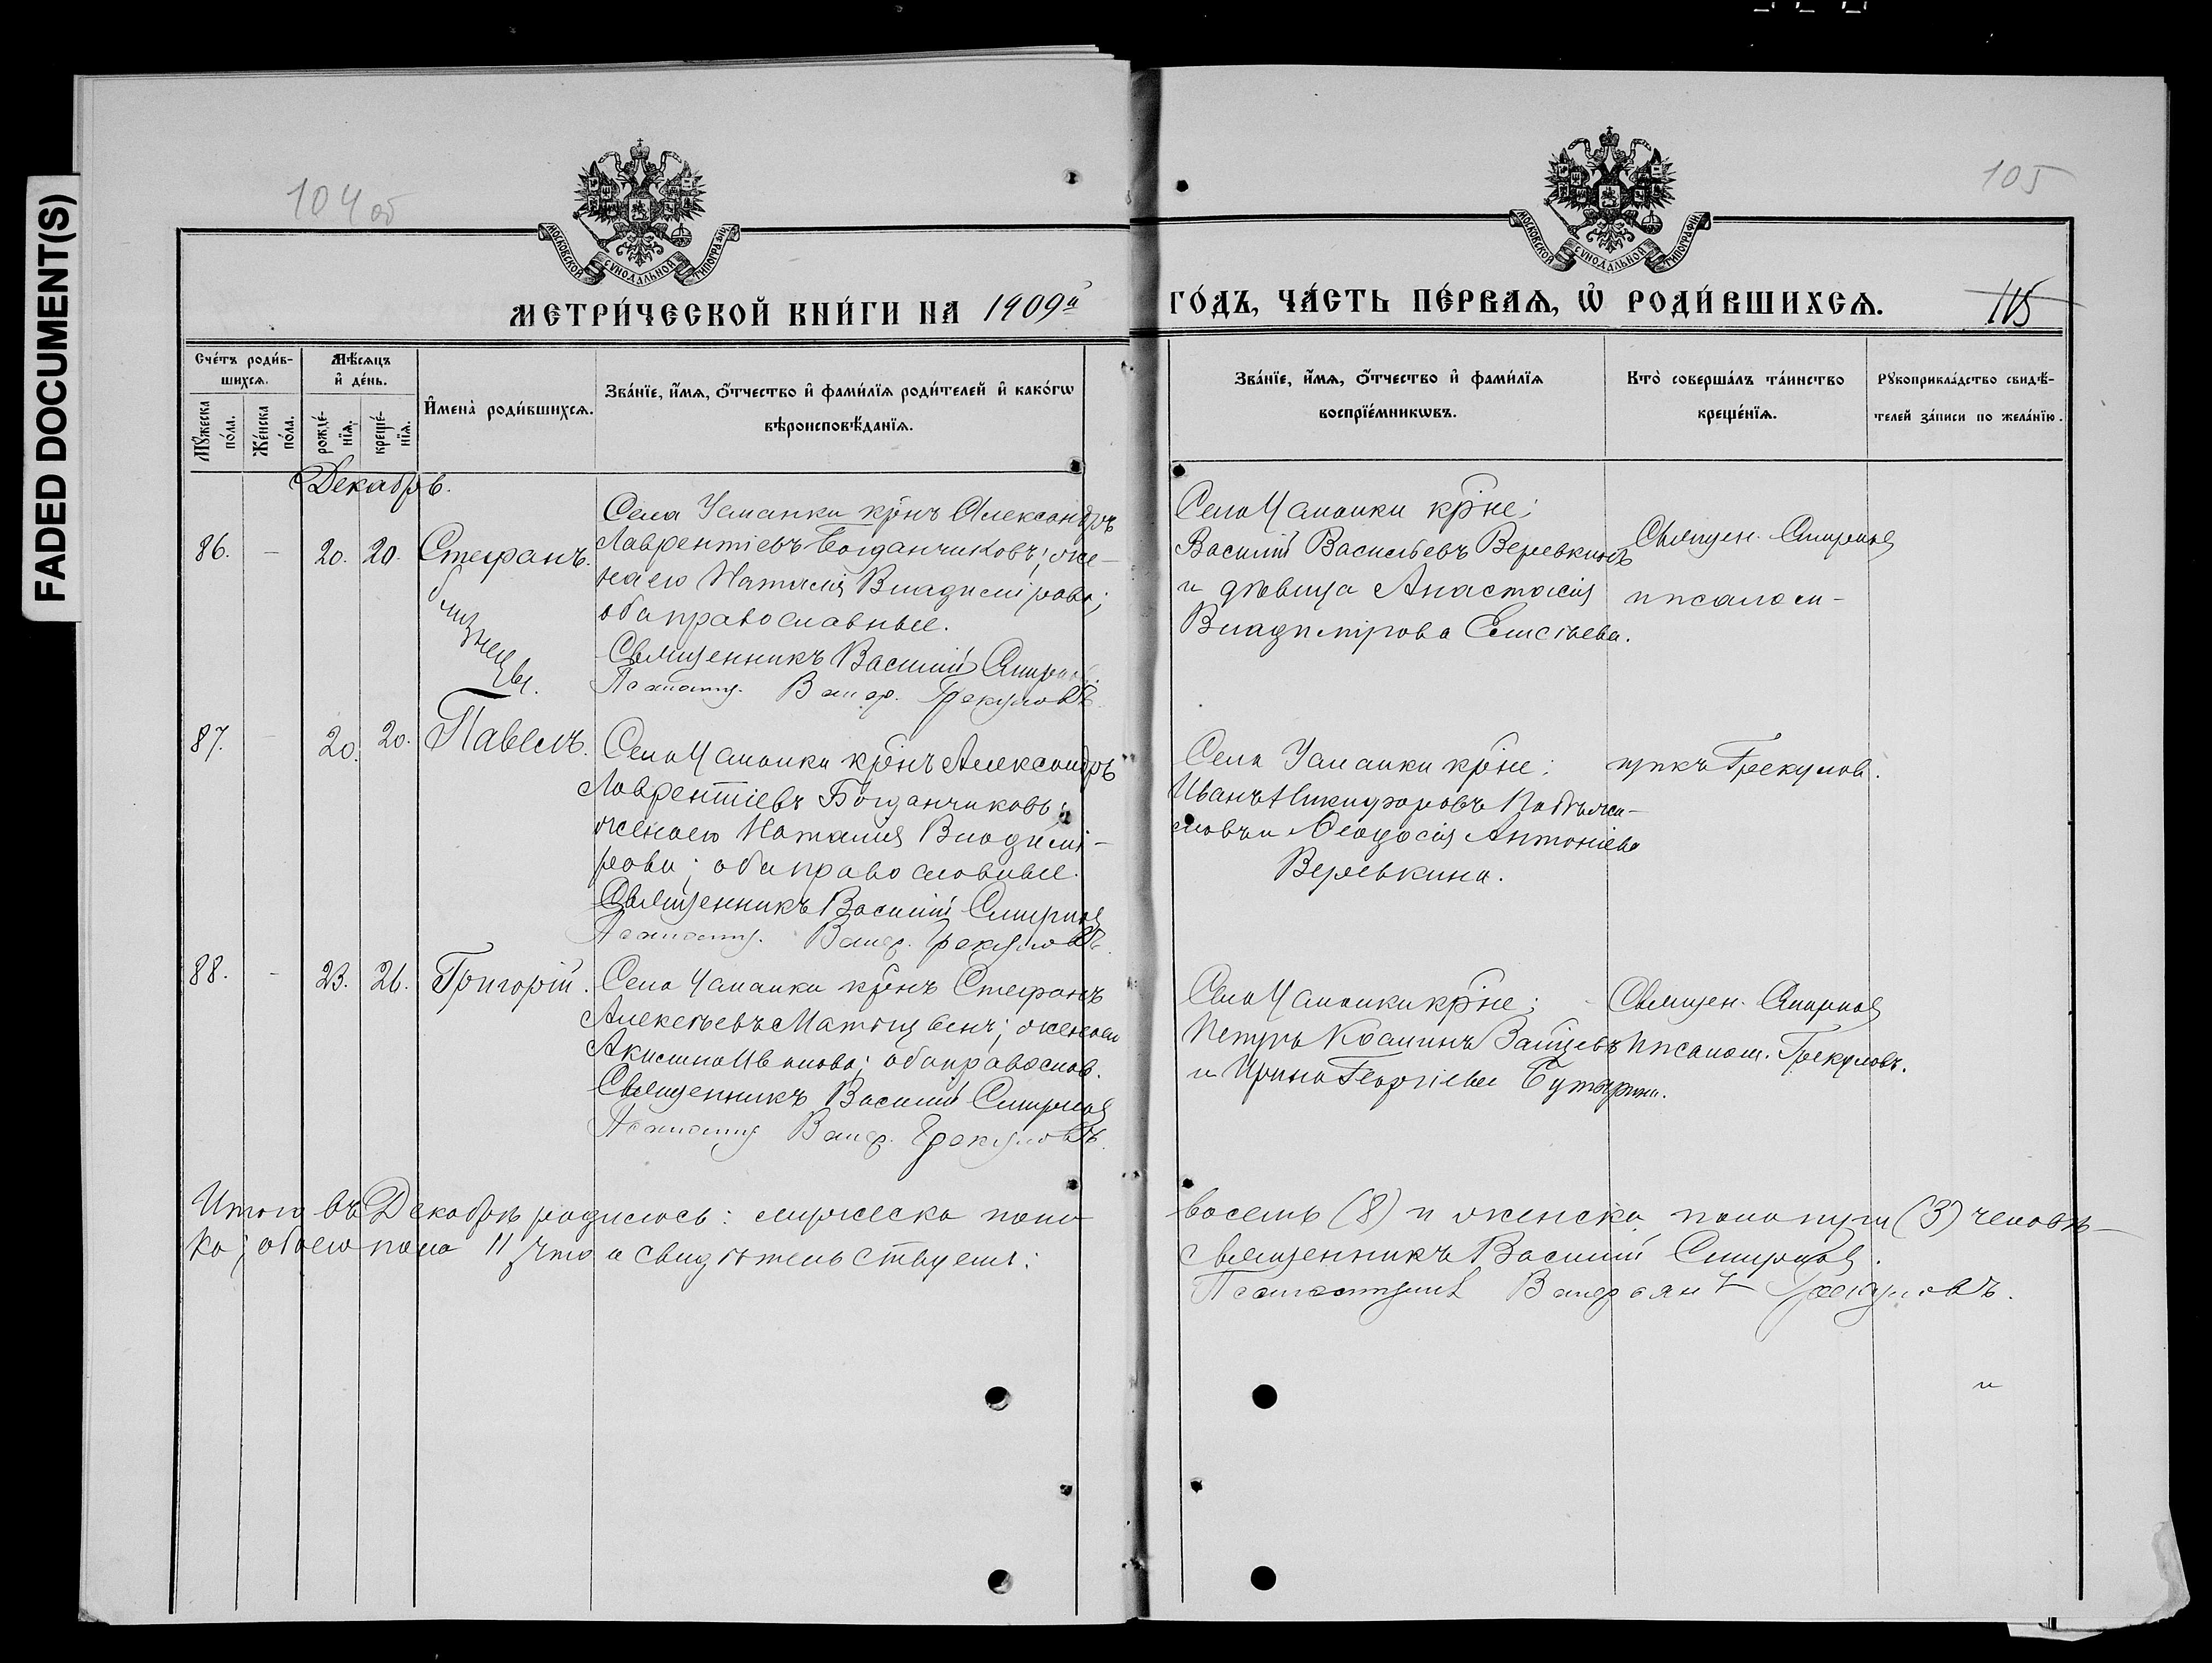 FADED DOCUMENT(S)
104 об
105
МОСКОВСКОЙ СѴНОДАЛЬНОЙ ТИПОГРАФІИ
МОСКОВСКОЙ СѴНОДАЛЬНОЙ ТИПОГРАФІИ
МЕТРИ́ЧЕСКОЙ КНИ́ГИ НА 1909й
ГО́ДЪ, ЧА́СТЬ ПЕ́РВАѦ, Ѡ҆ РОДИ́ВШИХСѦ.
115
Сче́тъ роди́в-
шихсѧ.
Мꙋ́жеска по́ла.
Же́нска по́ла.
Мѣ́сѧцъ
и҆ де́нь.
рожде́-
нїѧ.
креще́-
нїѧ.
И҆мена̀ роди́вшихсѧ.
Зва́нїе, и҆́мѧ, ѻ҆́тчество и҆ фами́лїѧ роди́телей и҆ како́гѡ
вѣроисповѣ́данїѧ.
Зва́нїе, и҆́мѧ, ѻ҆́тчество и҆ фами́лїѧ
воспрїе́мникѡвъ.
Кто̀ соверша́лъ та́инство
креще́нїѧ.
Рꙋкоприкла́дство свидѣ́-
телей за́писи по жела́нїю.
Декабрь.
86. - 20. 20. Стефанъ.
близнецы.
Села Усманки крнъ Александръ
Лаврентіевъ Богданчиковъ; же-
на его Наталія Владимірова;
оба православные.
Священникъ Василій Смирновъ
Псаломщ. Валер. Грекуловъ.
Села Усманки крне:
Василій Васильевъ Веревкинъ
и дѣвица Анастасія
Владимірова Елисѣева.
Священ. Смирновъ
псалом-
87. - 20. 20. Павелъ.
Села Усманки крнъ Александръ
Лаврентіевъ Богданчиковъ;
жена его Наталія Владимі-
рова; оба православные.
Священникъ Василій Смирновъ
Псаломщ. Валер. Грекуловъ.
Села Усманки крне:
Иванъ Никифоровъ
и Ѳеодосія Антоніева
Веревкина.
щикъ Грекулов.
88. - 23. 26. Григорій.
Села Усманки крнъ Стефанъ
Алексѣевъ жена его
Акилина Иванова; оба православ.
Священникъ Василій Смирновъ
Псаломщ Валер. Грекуловъ.
Села Усманки крне:
Петръ Косминъ Зайцевъ
и Ирина Георгіева
Священ. Смирновъ
псалом. Грекуловъ.
Итого въ Декабрѣ родилось: мужеска пола
восемь (8) и женска пола три (3) человѣ-
ка; обоего пола 11 что и свидѣтельствуемъ:
священникъ Василій Смирновъ.
Псаломщикъ Валеріанъ Грекуловъ.